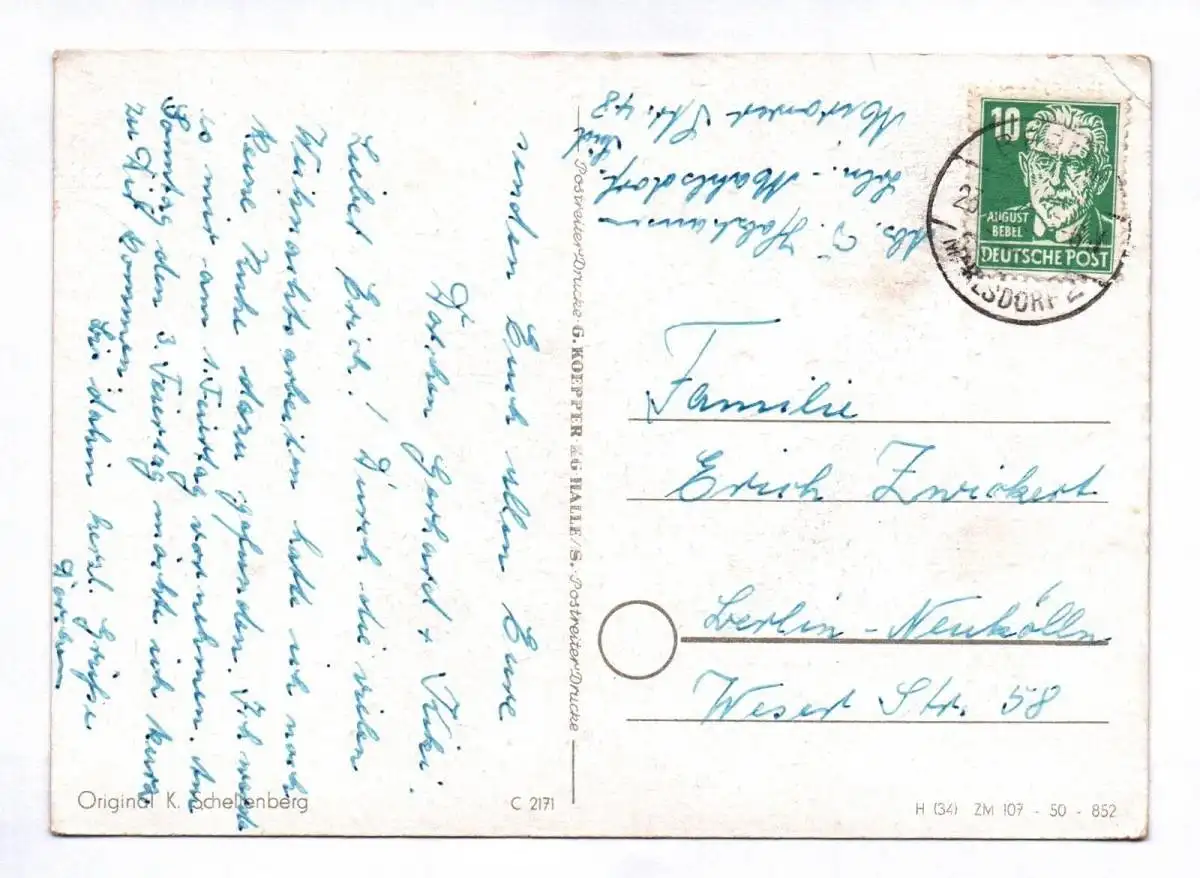 wünschen Euch allen Eure
Dorchen Gerhard + Kiki.
Lieber Erich! Durch die vielen
Weihnachtsarbeiten hatte ich noch
keine Ruhe dazu gefunden. Ich werde
es mir am 1. Feiertag vornehmen. Am
Sonntag den 3. Feiertag möchte ich kurz
zu Dir kommen.
Bis dahin herzl. Grüße
Dorchen
Original K. Schellenberg
C 2171
Postreiter-Drucke G. KOEPPER KG HALLE/S. Postreiter-Drucke
Abs. G.
Bln.-Mahlsdorf.
Süd
Str. 48
10
AUGUST
BEBEL
DEUTSCHE POST
MAHLSDORF 2
Familie
Erich Zwickert
Berlin-Neukölln
Weser Str. 58
H (34) ZM 107 - 50 - 852